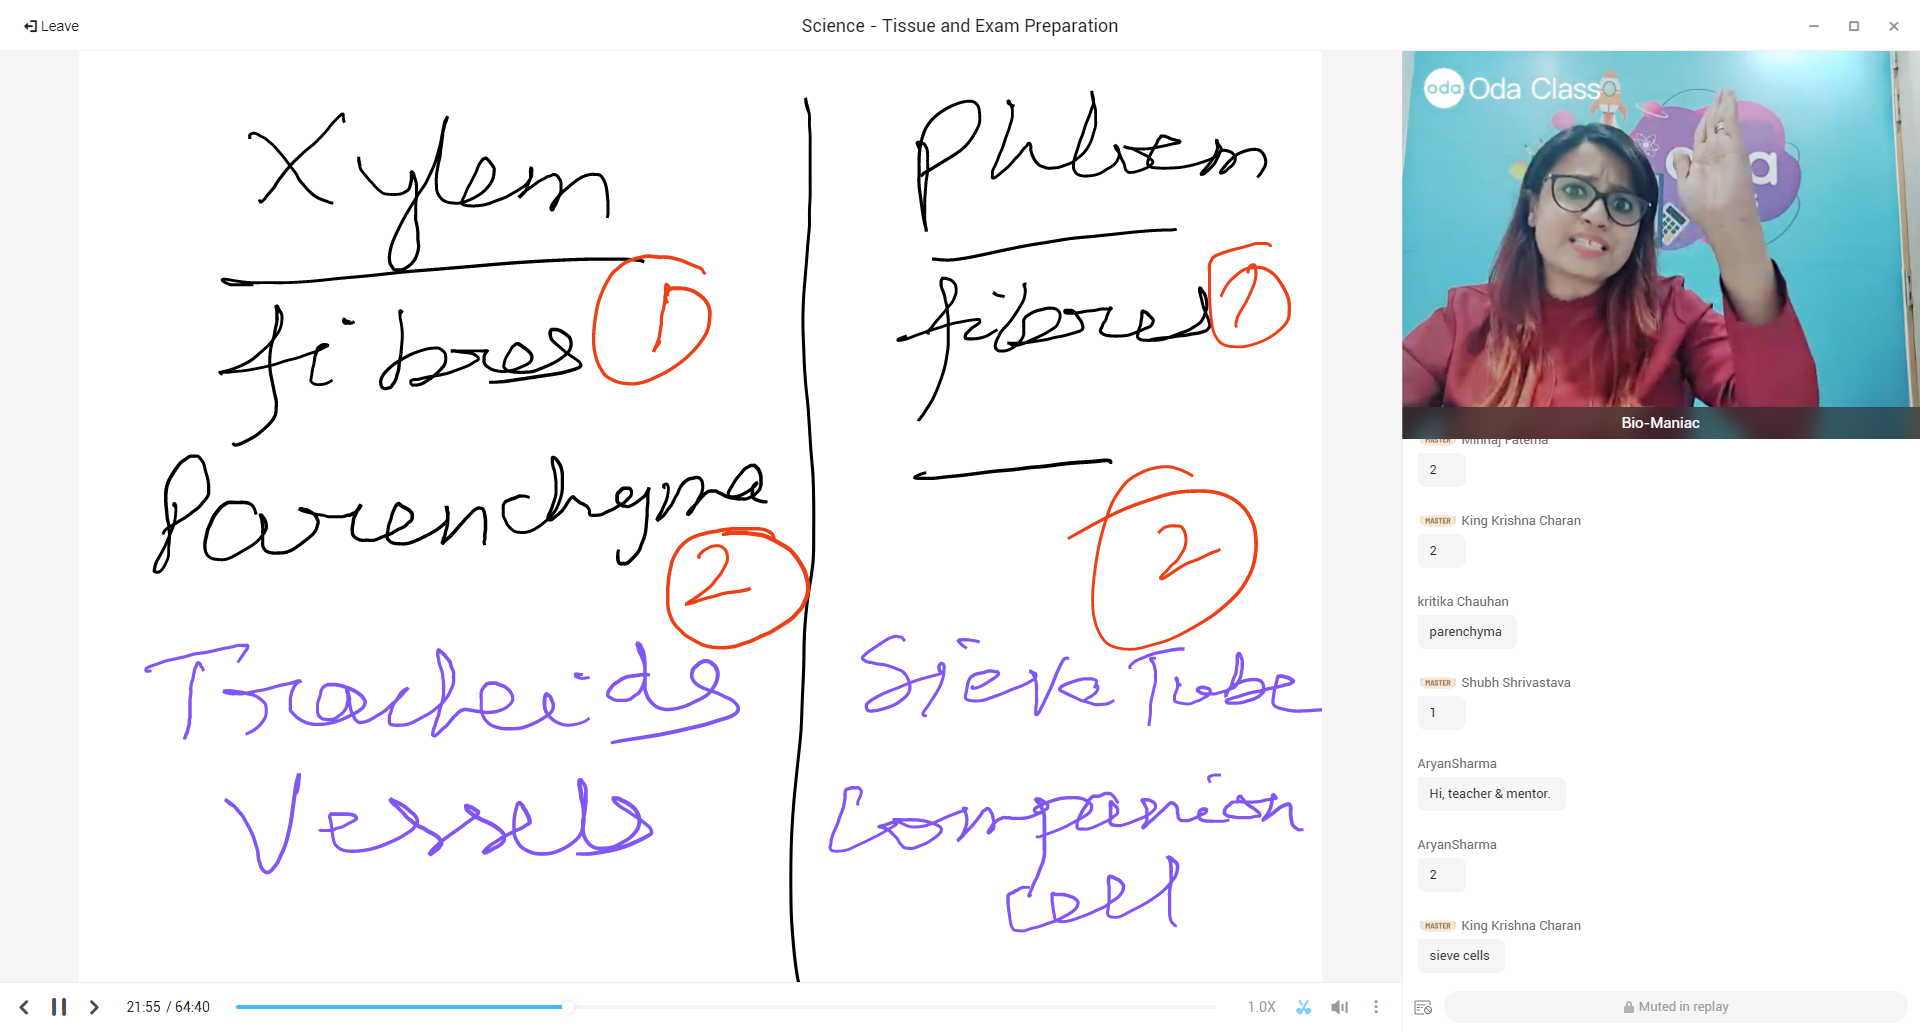 Leave
Science - Tissue and Exam Preparation
Xylem
fibres 1
Parenchyma
2
Tracheids
Vessels
Phloem
fibres 1
2
Sieve Tube
Companion
cell
oda Oda Class
Bio-Maniac
MASTER Minhaj Fatema
2
MASTER King Krishna Charan
2
kritika Chauhan
parenchyma
MASTER Shubh Shrivastava
1
AryanSharma
Hi, teacher & mentor.
AryanSharma
2
MASTER King Krishna Charan
sieve cells
21:55 / 64:40
1.0X
Muted in replay